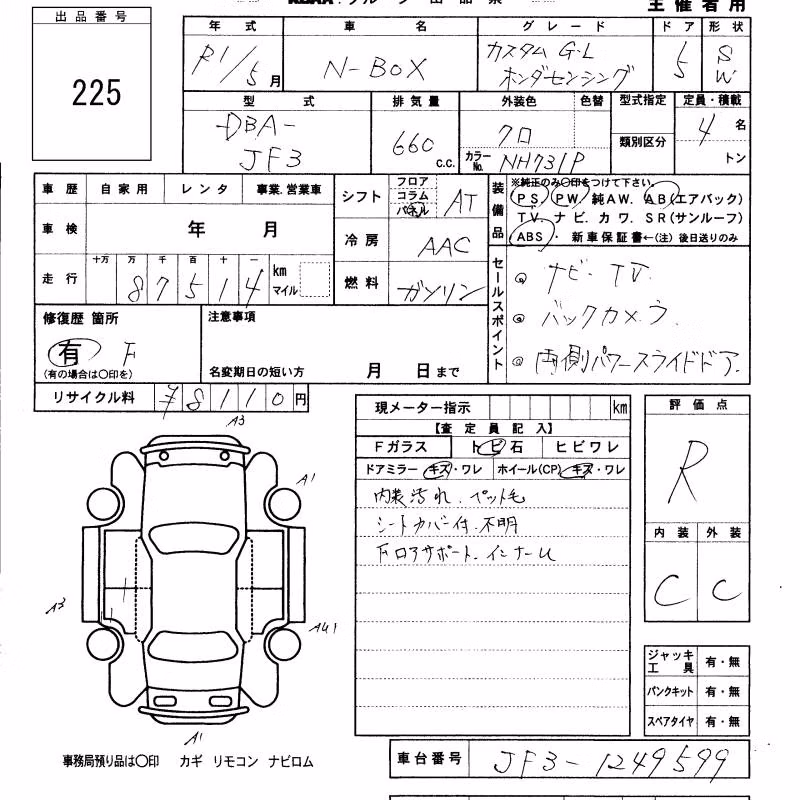 主催者用
出品番号
225
年式 車名 グレード ドア 形状
R1/5月 N-BOX カスタム G・L ホンダセンシング 5 SW
型式 排気量 外装色 色替 型式指定 定員・積載
DBA-JF3 660 c.c. クロ カラーNo. NH731P 類別区分 4名 トン
車歴 自家用 レンタ 事業.営業車
車検 年 月
走行 十万 万 千 百 十 一 km マイル
87514
シフト フロア コラム パネル AT
冷房 AAC
燃料 ガソリン
装備品 ※純正のみ○印をつけて下さい。
PS. PW. 純AW. AB(エアバック)
TV. ナビ. カワ. SR(サンルーフ)
ABS・ 新車保証書←(注) 後日送りのみ
セールスポイント
ナビ・TV.
バックカメラ.
両側パワースライドドア.
修復歴 箇所
有 F
(有の場合は○印を)
注意事項
名変期日の短い方 月 日まで
リサイクル料 ¥8110円
現メーター指示 km
【査定員記入】
Fガラス トビ石 ヒビワレ
ドアミラー キズ・ワレ ホイール(CP) キズ・ワレ
内装汚れ. ペット毛
シートカバー付. 不明
Fコアサポート. インナーU
評価点
R
内装 外装
C C
ジャッキ工具 有・無
パンクキット 有・無
スペアタイヤ 有・無
A3
A1
A3
AU1
A1
事務局預り品は○印 カギ リモコン ナビロム
車台番号 JF3-1249599